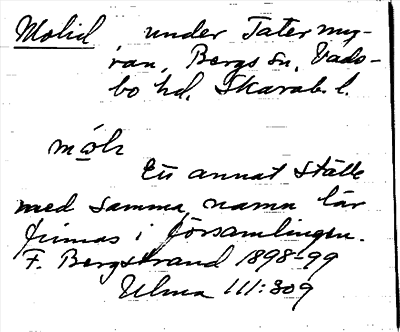 Molid under Tatermy-
ran, Bergs sn, Vads-
bo hd, Skarab. l.
Ett annat ställe
med samma namn lär
finnas i församlingen.
F. Bergstrand 1898-99
Ulma 111:309